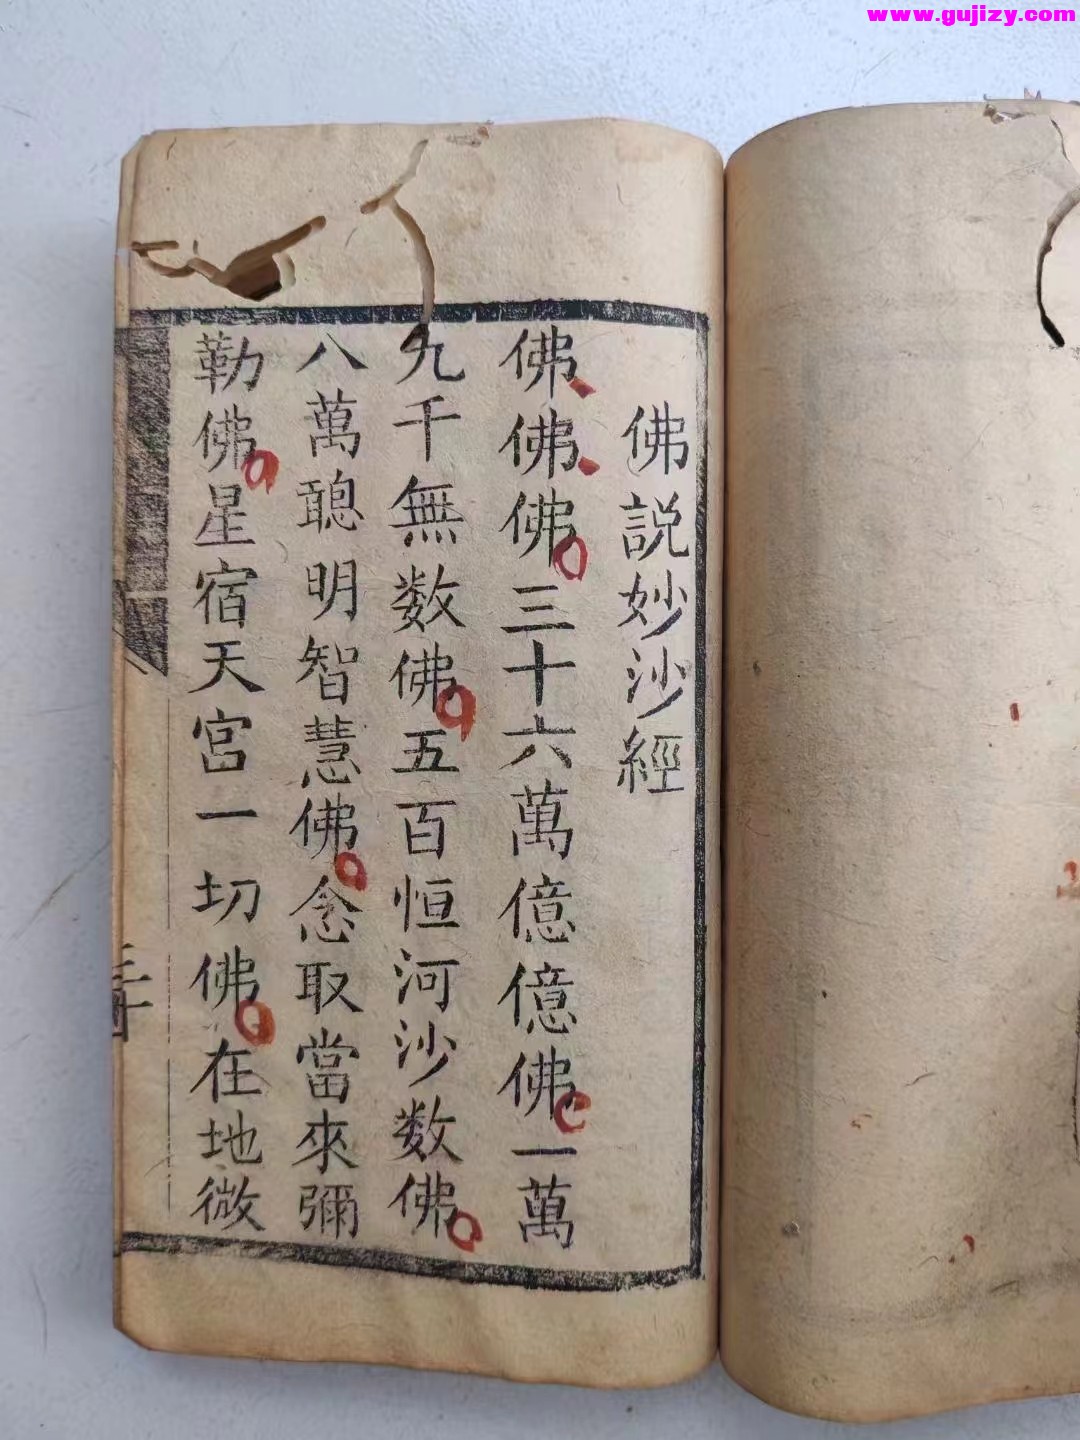 www.gujizy.com
佛説妙沙經
佛佛佛三十六萬億億佛一萬
九千無数佛五百恒河沙数佛
八萬聰明智慧佛念取當來彌
勒佛星宿天宫一切佛在地微